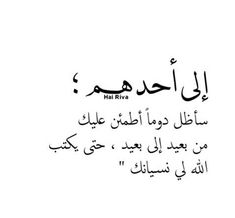 إلى أحدهم ؛
Hal Riva
سأظل دوماً أطمئن عليك
من بعيد إلى بعيد ، حتى يكتب
الله لي نسيانك "